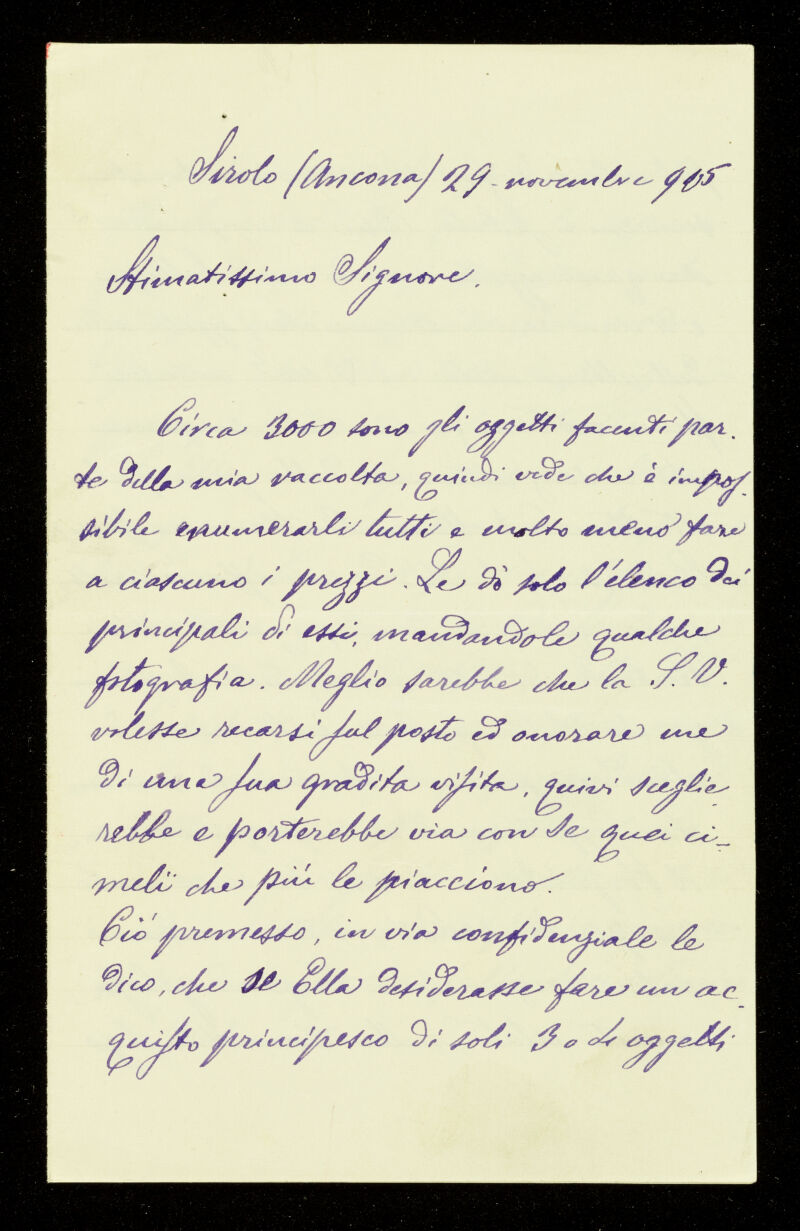 Sirolo (Ancona) 29 - novembre 905
Stimatissimo Signore.
Circa 3000 sono gli oggetti facenti par-
te della mia raccolta, quindi vede che è impos-
sibile enumerarli tutti e molto meno fare
a ciascuno i prezzi. Le dò solo l'elenco dei
principali di essi, mandandole qualche
fotografia. Meglio sarebbe che la S. V.
volesse recarsi sul posto ed onorare me
di una sua gradita visita, quivi sceglie
rebbe e porterebbe via con se quei ci-
melï che più le piacciono.
Ciò premesso, in via confidenziale le
dico, che se Ella desiderasse fare un ac-
quisto principesco di soli 3 o 4 oggetti